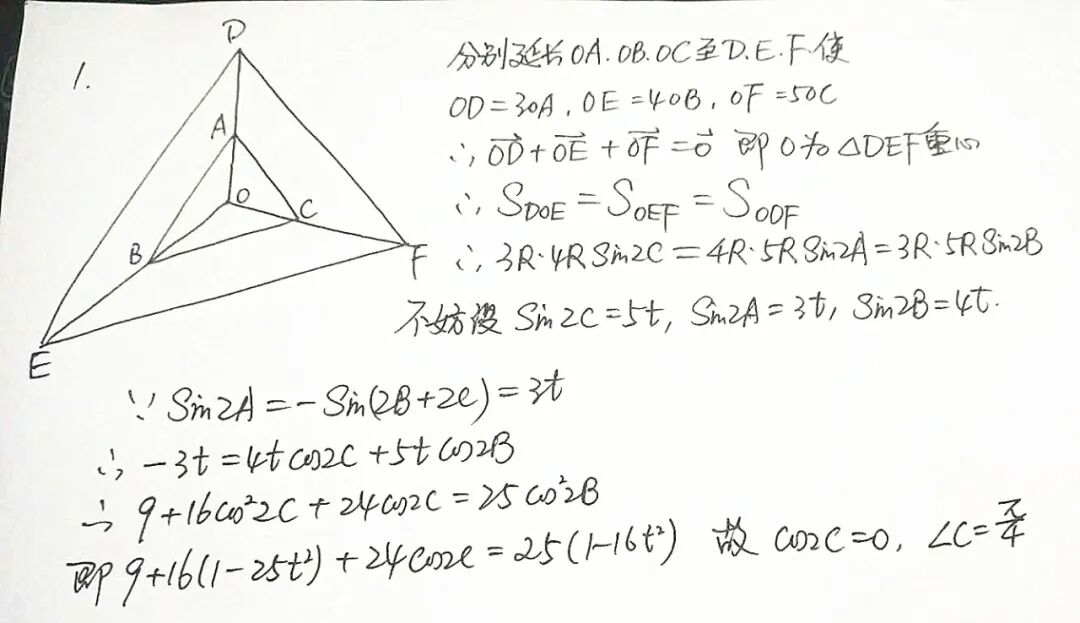 1.
D
A
O
C
B
F
E
分别延长OA.OB.OC至D.E.F.使
OD=3OA,OE=4OB,OF=5OC
∴ \vec{OD}+\vec{OE}+\vec{OF}=\vec{0} 即O为△DEF重心
∴ S_{DOE}=S_{OEF}=S_{ODF}
∴ 3R·4RSin2C=4R·5RSin2A=3R·5RSin2B
不妨设 Sin2C=5t, Sin2A=3t, Sin2B=4t.
∵ Sin2A=-Sin(2B+2C)=3t
∴ -3t=4tcos2C+5tcos2B
∴ 9+16cos²2C+24cos2C=25cos²2B
即 9+16(1-25t²)+24cos2C=25(1-16t²) 故 cos2C=0, ∠C=π/4